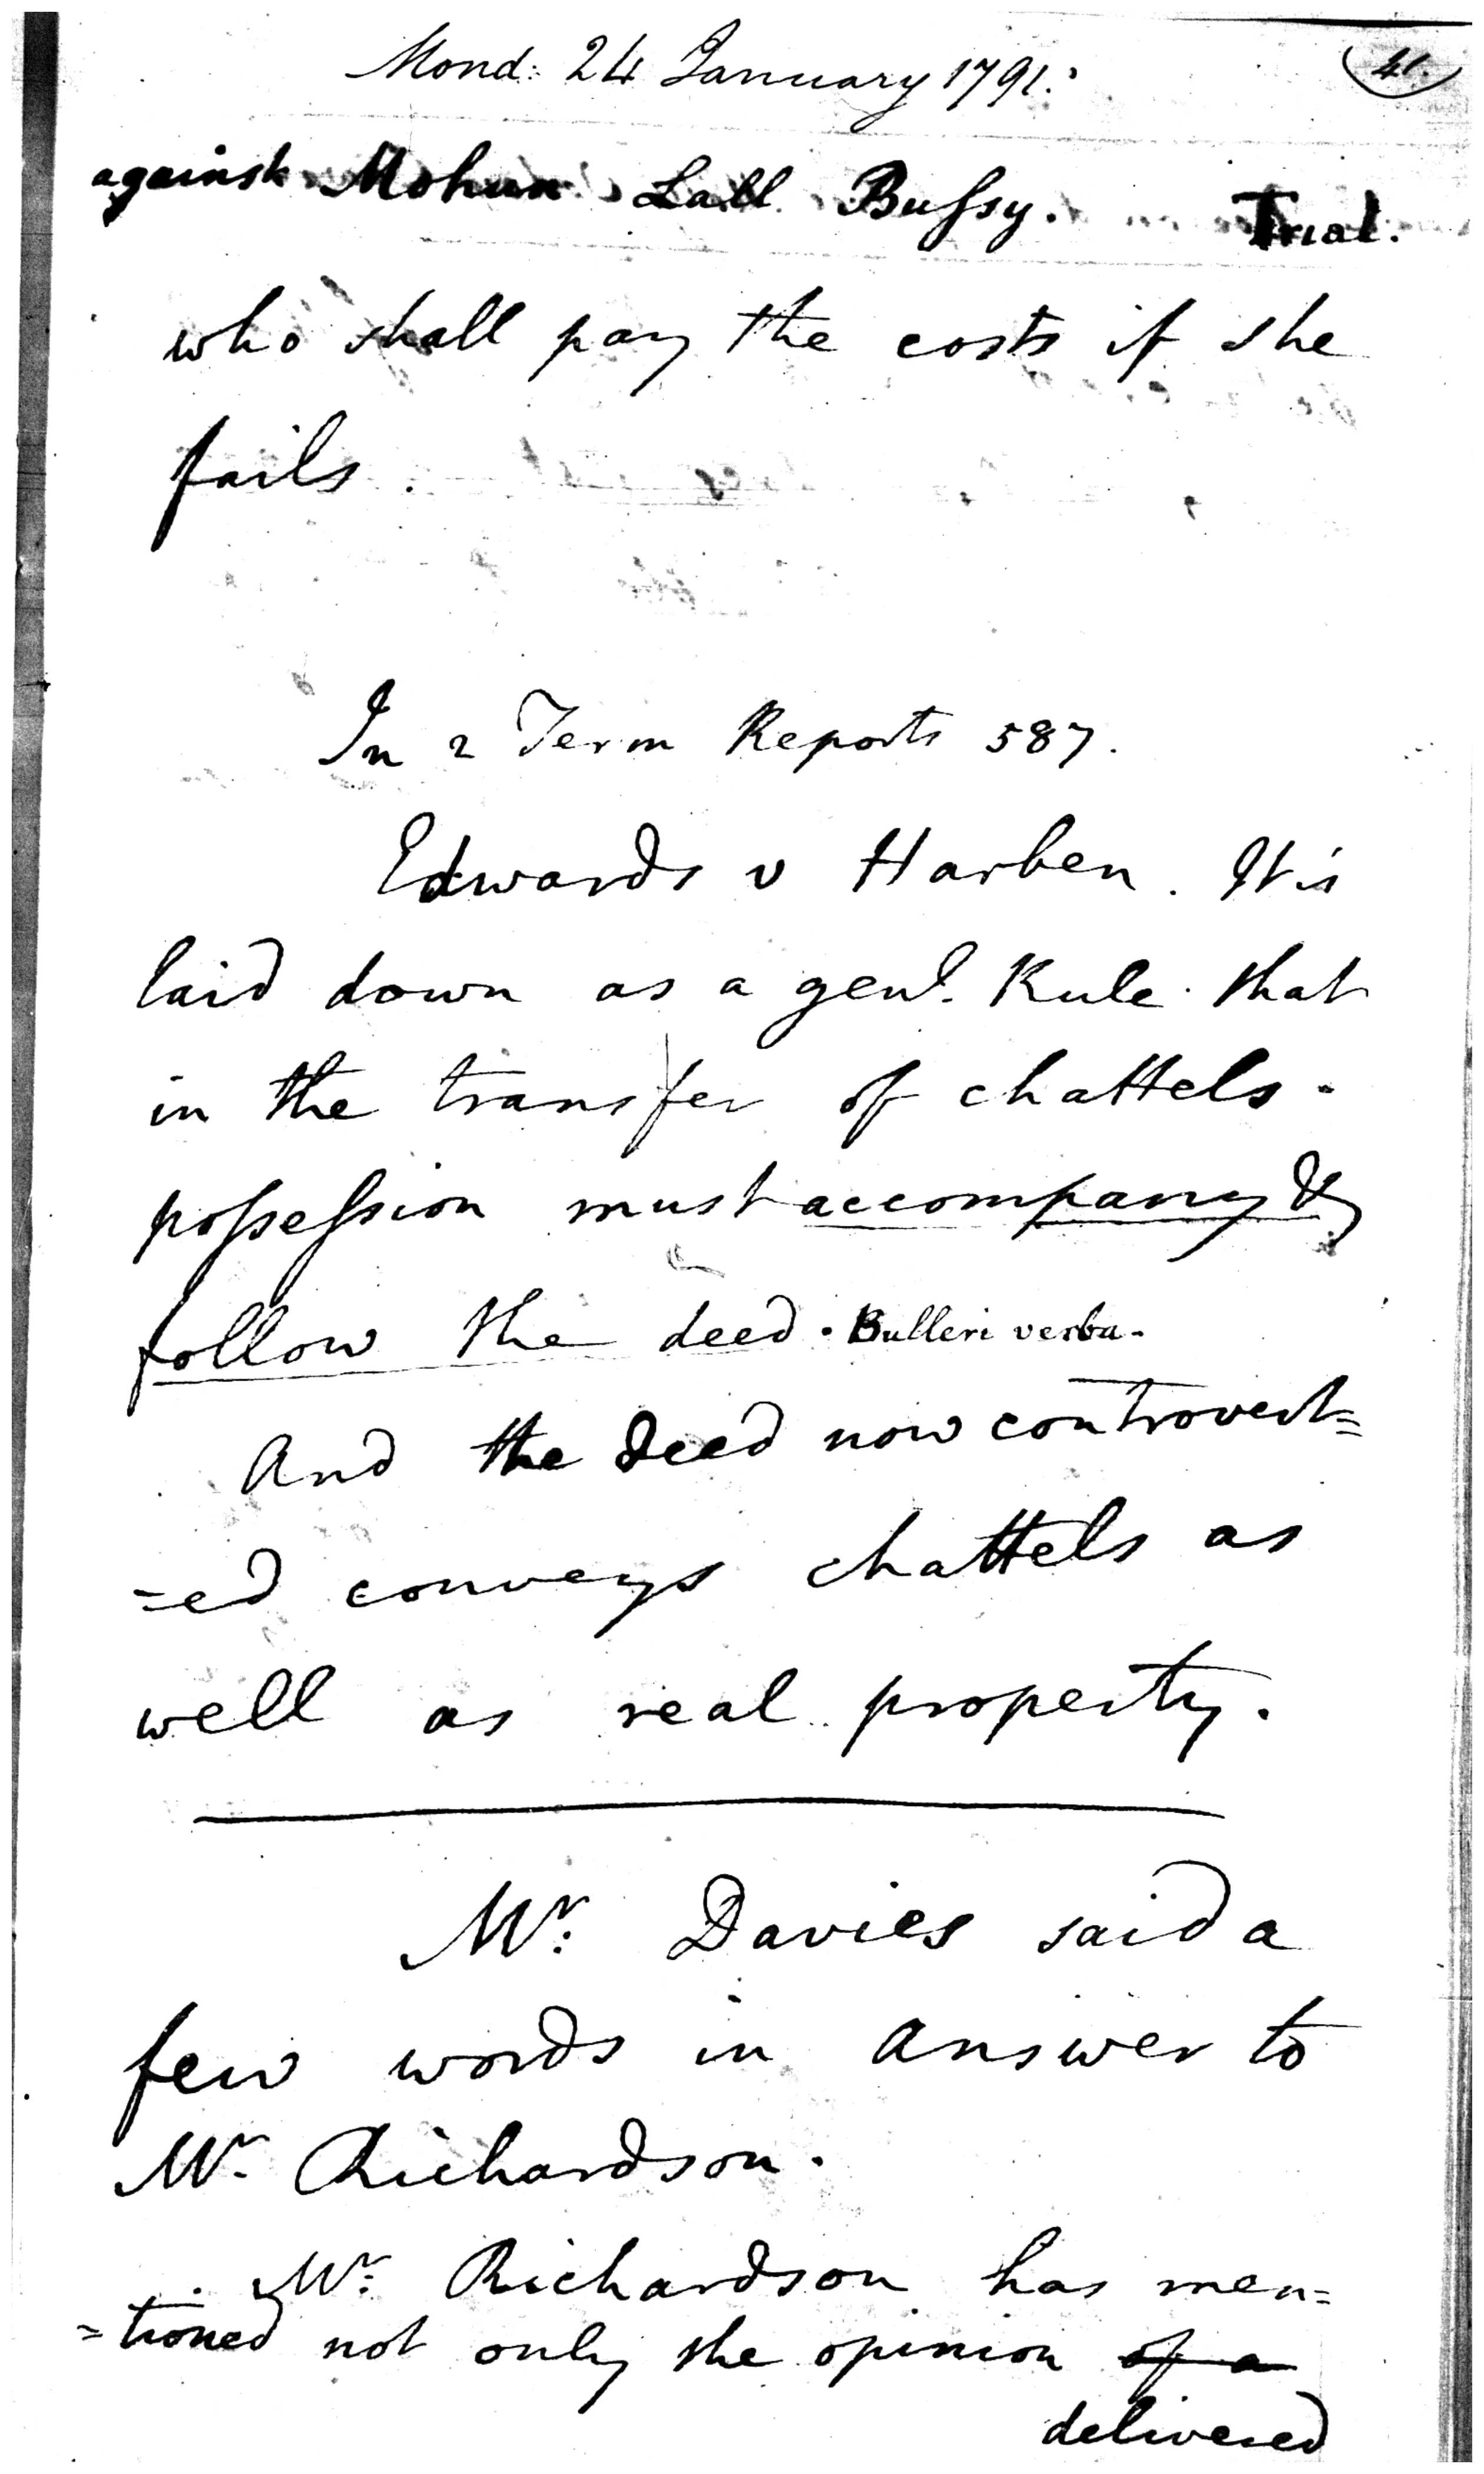 Mond: 24 January 1791.
41.
against Mohun Lall Bussy. Trial.
who shall pay the costs if she
fails.
In 2 Term Reports 587.
Edwards v Harben. It is
laid down as a genl. Rule that
in the transfer of chattels.
possession must accompany &
follow the deed. Bulleri verba.
And the Deed now controvert=
=ed conveys chattels as
well as real property.
Mr: Davies said a
few words in answer to
Mr. Richardson.
Mr: Richardson has men=
=tioned not only the opinion of a
delivered